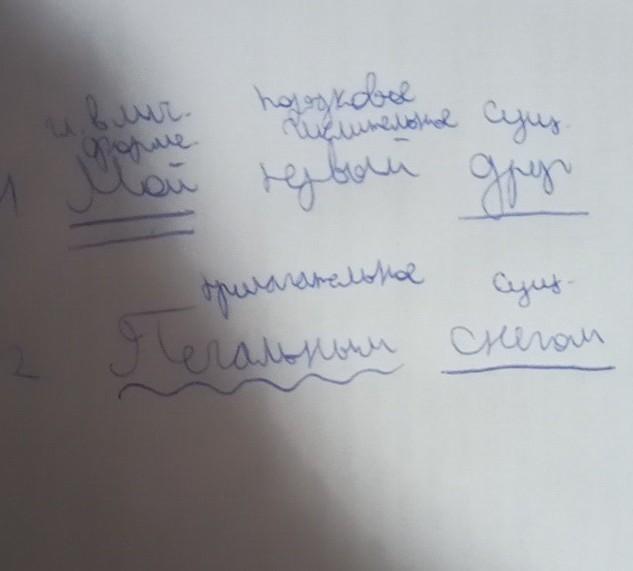 порядковое
и. в лич. числительное сущ.
форме.
1 Мой первый друг
прилагательное сущ.
2 Печальным снегом